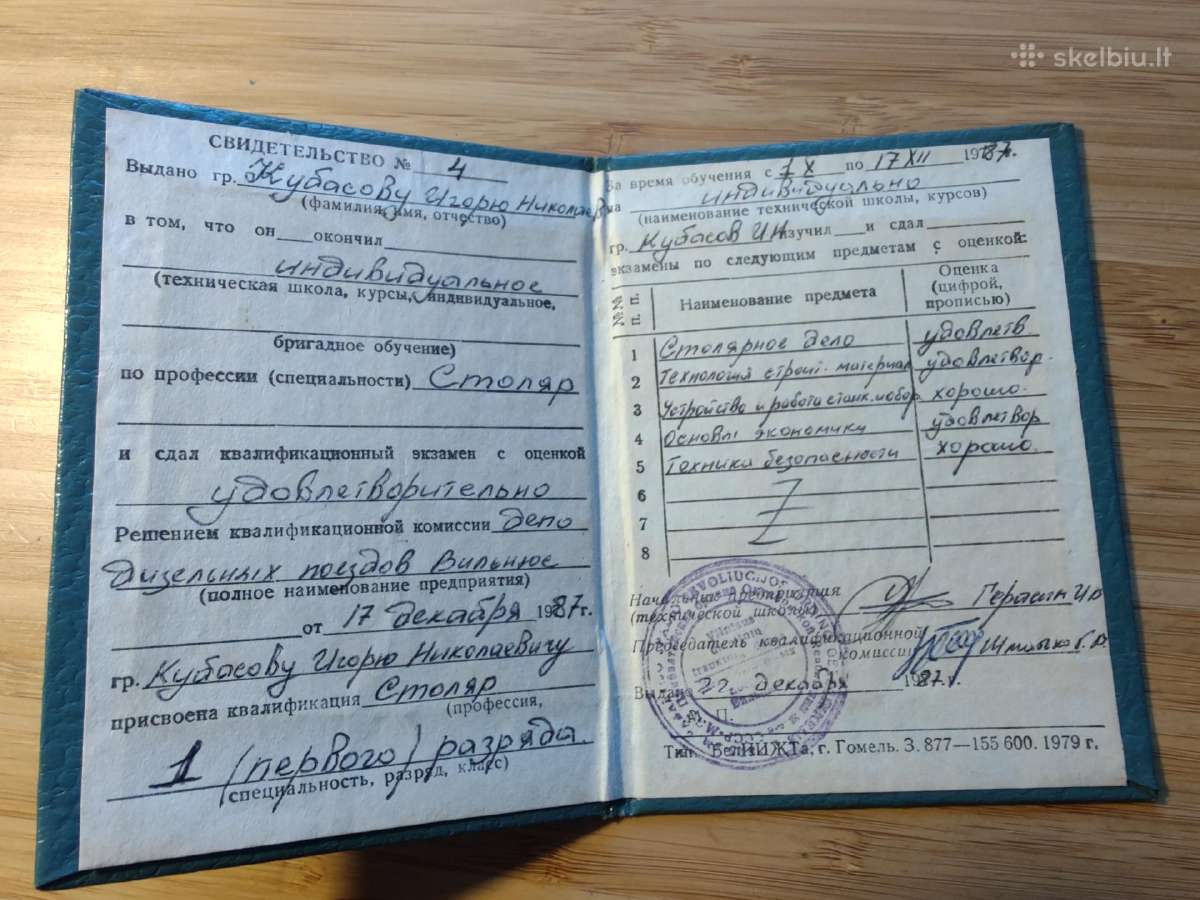 skelbiu.lt
СВИДЕТЕЛЬСТВО № 4
Выдано гр. Кубасову Игорю Николаев
(фамилия, имя, отчество)
в том, что он окончил
индивидуальное
(техническая школа, курсы, индивидуальное,
бригадное обучение)
по профессии (специальности) Столяр
и сдал квалификационный экзамен с оценкой
удовлетворительно
Решением квалификационной комиссии депо
дизельных поездов Вильнюс
(полное наименование предприятия)
от 17 декабря 1987 г.
гр. Кубасову Игорю Николаевичу
присвоена квалификация Столяр
(профессия,
1 (первого) разряда
специальность, разряд, класс)
За время обучения с 1 X по 17 XII 1987 г.
на индивидуально
(наименование технической школы, курсов)
гр. Кубасов И.Н. изучил и сдал
экзамены по следующим предметам с оценкой:
№№ п. п. Наименование предмета Оценка (цифрой, прописью)
1 Столярное дело удовлетв
2 Технология строит. материал удовлетвор.
3 Устройство и работа станк. и обор. хорошо.
4 Основы экономики удовлетвор
5 Техника безопасности хорошо.
6
7
8
Начальник предприятия
(технической школы) Герасин
Председатель квалификационной
комиссии
Выдано 22 декабря 1987 г.
М. П.
Тип. БелИИЖТа, г. Гомель. З. 877—155 600. 1979 г.